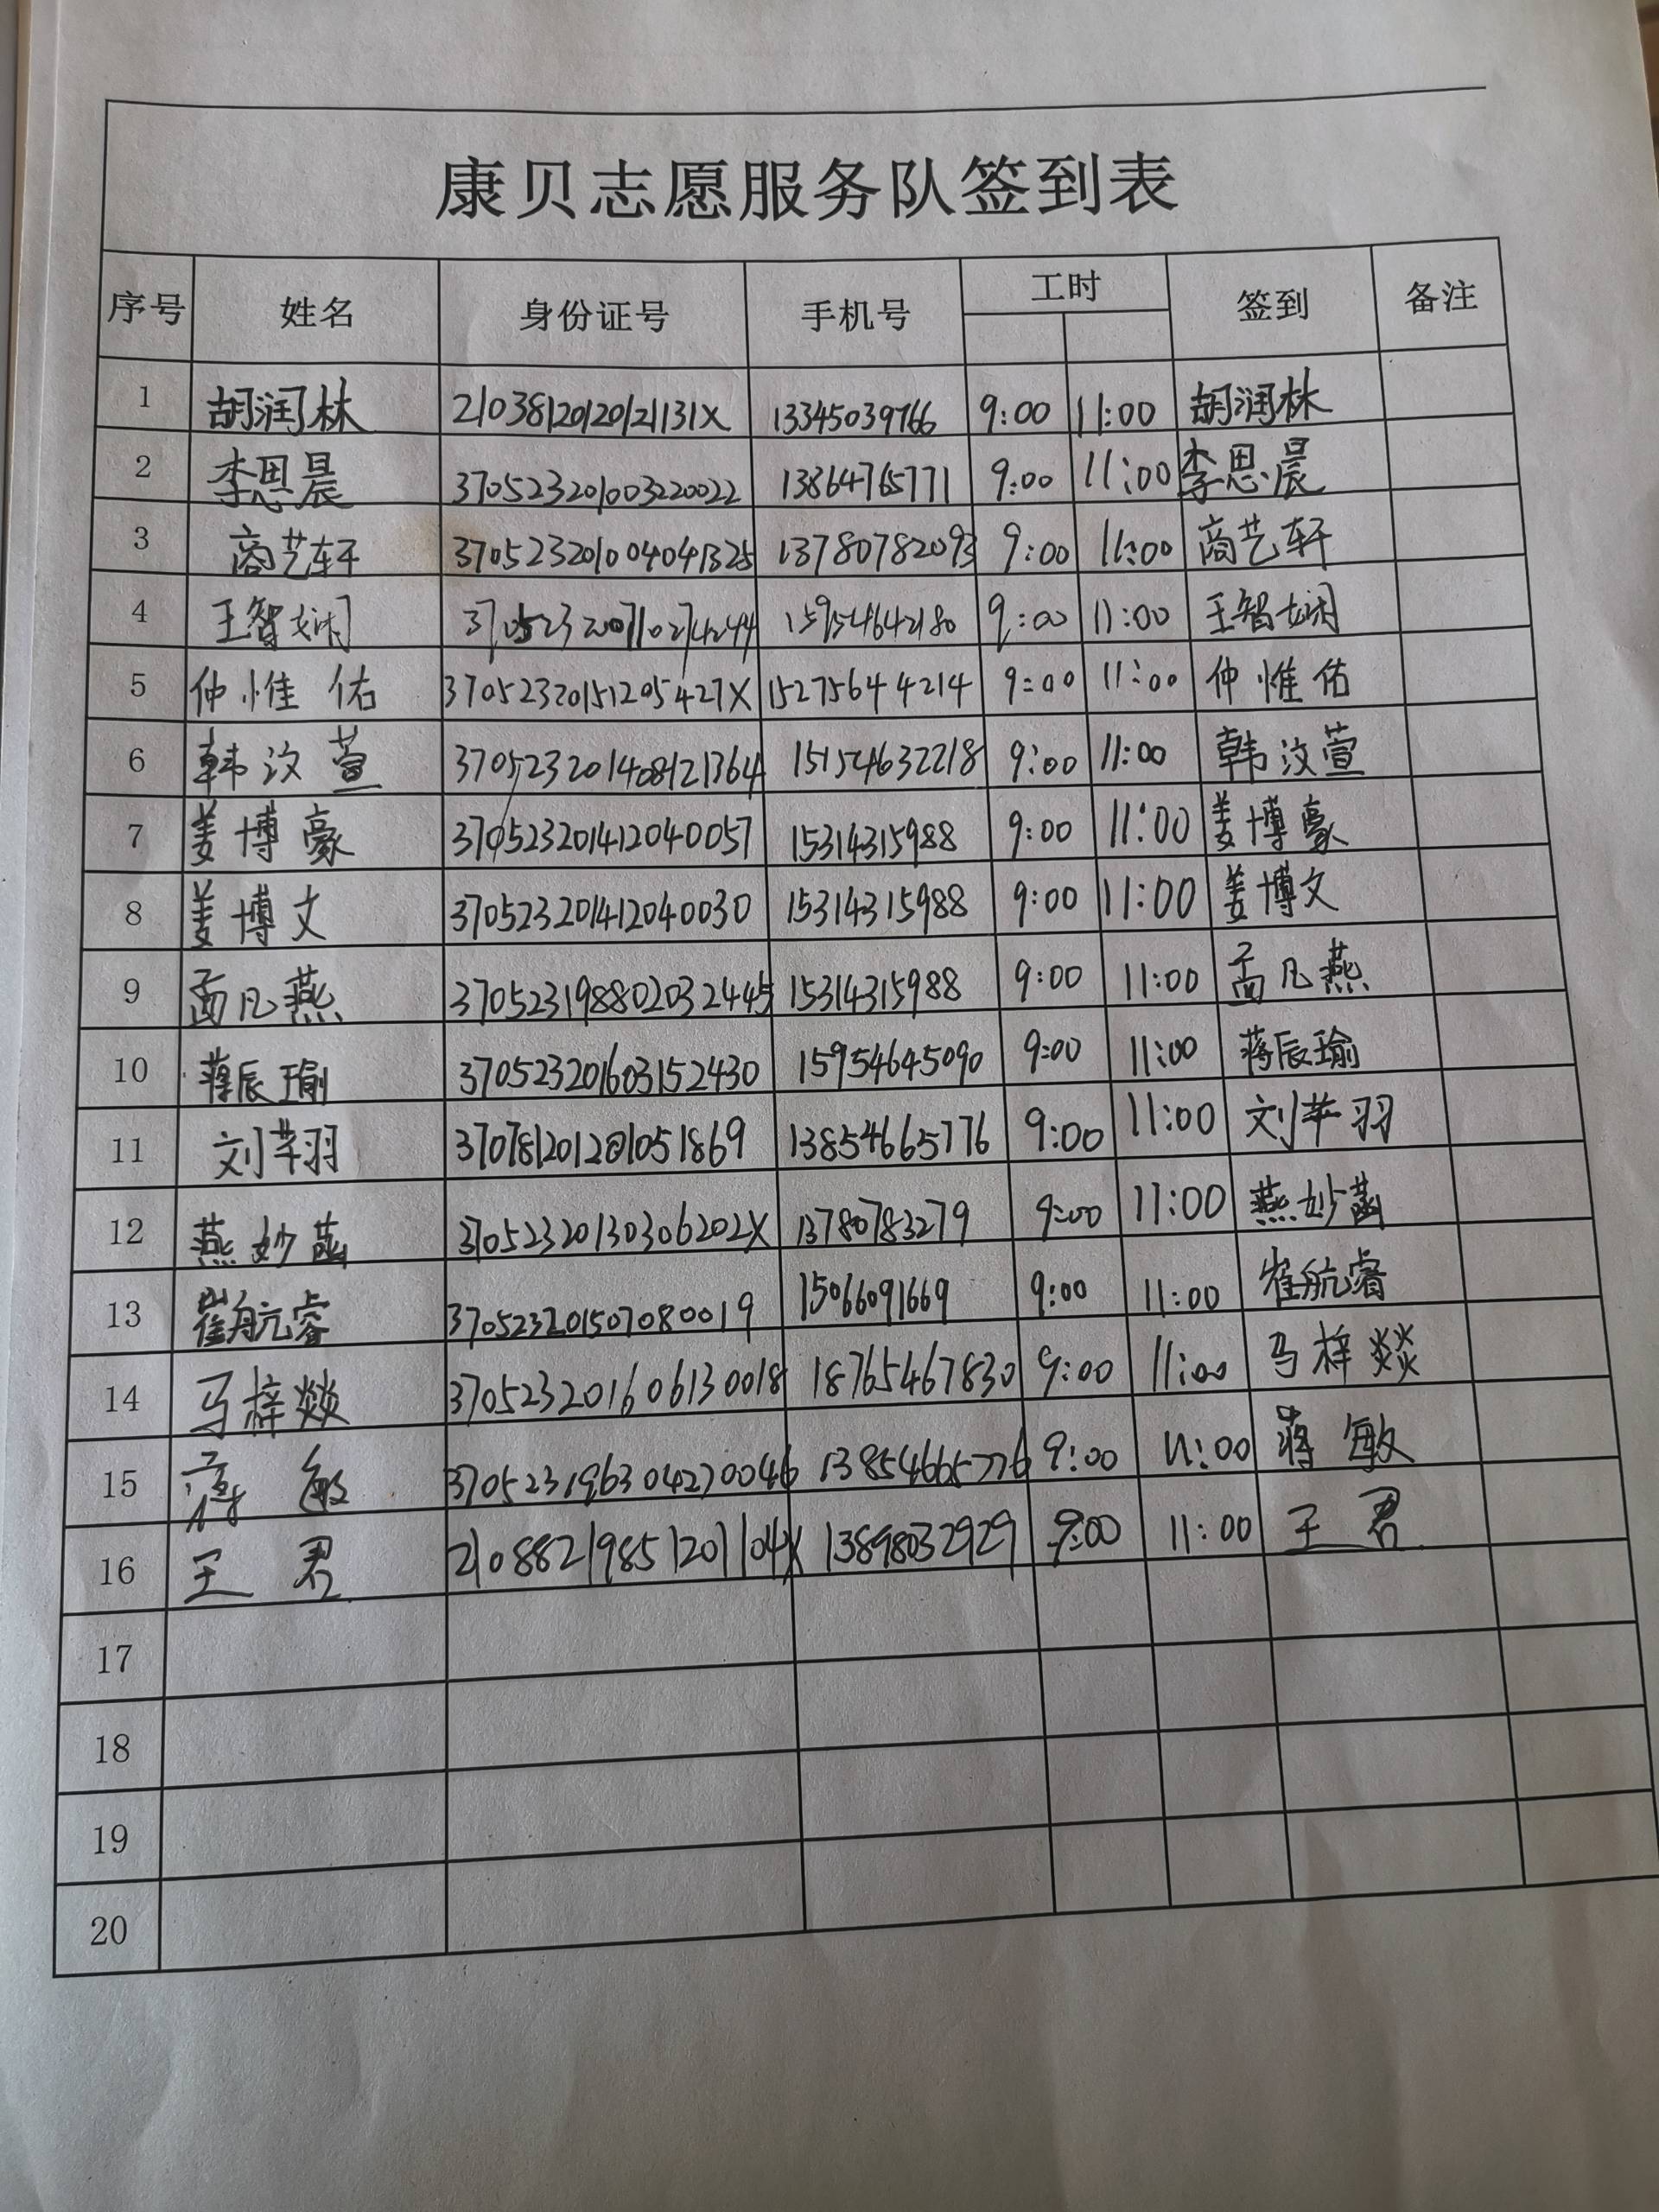 康贝志愿服务队签到表
序号 姓名 身份证号 手机号 工时 签到 备注
1 胡润林 21038120120121131X 13345039766 9:00 11:00 胡润林
2 李思晨 370523201003220022 13864765771 9:00 11:00 李思晨
3 商艺轩 370523201004041325 13780782093 9:00 11:00 商艺轩
4 王智娴 370523200711027424 15954642180 9:00 11:00 王智娴
5 仲惟佑 37052320151205427X 15275644214 9:00 11:00 仲惟佑
6 韩汶萱 370523201408121364 15154632218 9:00 11:00 韩汶萱
7 姜博豪 370523201412040057 15314315988 9:00 11:00 姜博豪
8 姜博文 370523201412040030 15314315988 9:00 11:00 姜博文
9 孟凡燕 370523198802032445 15314315988 9:00 11:00 孟凡燕
10 蒋辰瑜 370523201603152430 15954645090 9:00 11:00 蒋辰瑜
11 刘芊羽 370781201201051869 13854665776 9:00 11:00 刘芊羽
12 燕妙菡 37052320130306202X 13780783279 9:00 11:00 燕妙菡
13 崔航睿 370523201507080019 15066091669 9:00 11:00 崔航睿
14 马梓燚 370523201606130018 18765467830 9:00 11:00 马梓燚
15 蒋敏 370523196304270046 13854665776 9:00 11:00 蒋敏
16 王君 21088219851201104X 13898032929 9:00 11:00 王君
17
18
19
20